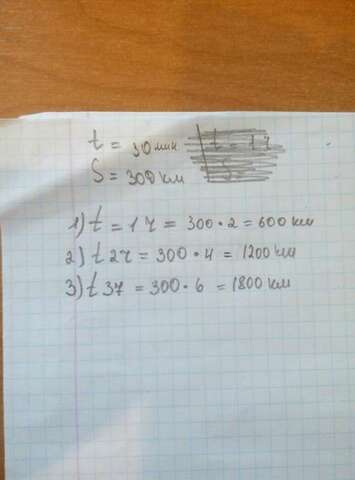 t = 30 мин
S = 300 км
1) t = 1 ч = 300 · 2 = 600 км
2) t 2ч = 300 · 4 = 1200 км
3) t 3ч = 300 · 6 = 1800 км